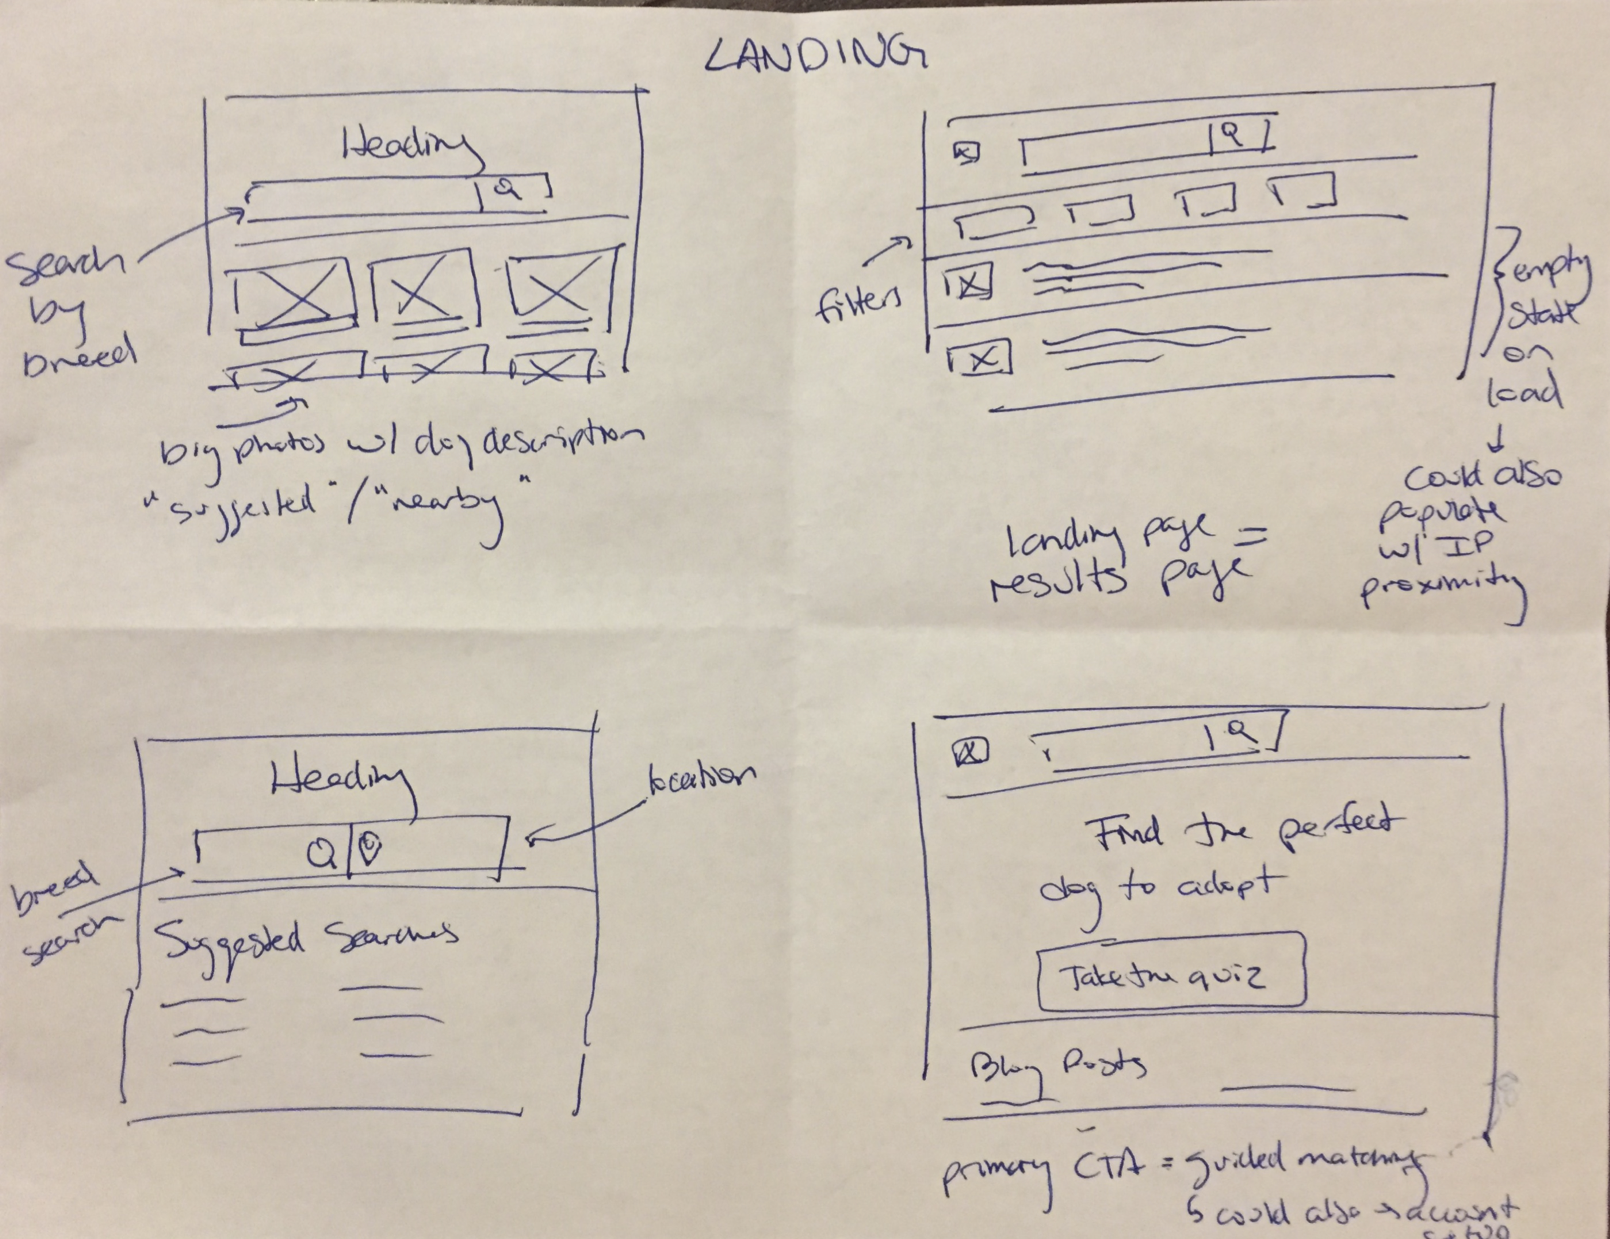 LANDING
Heading
Search
by
breed
big photos w/ dog description
"suggested"/"nearby"
filters
empty
state
on
load
could also
populate
w/ IP
proximity
landing page =
results page
Heading
location
breed
search
Suggested Searches
Find the perfect
dog to adopt
Take the quiz
Blog Posts
primary CTA = guided matching
↳ could also → account
setup